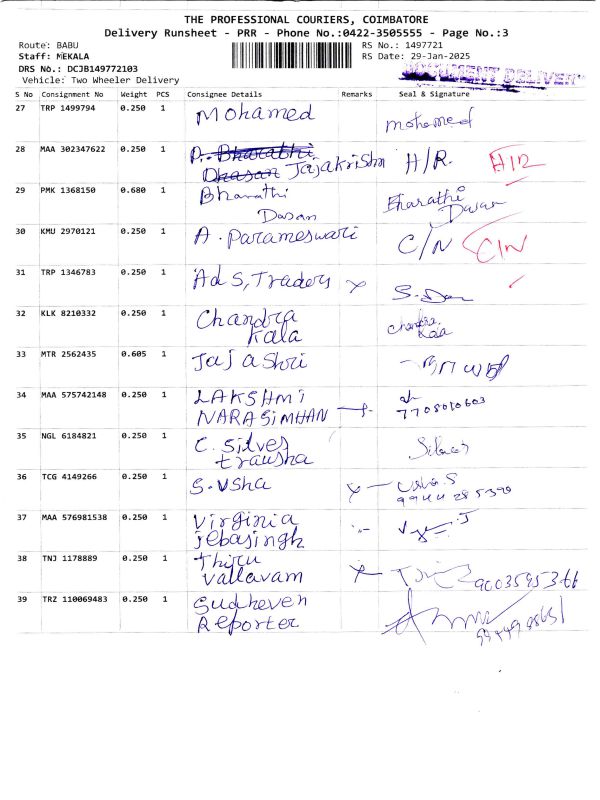 THE PROFESSIONAL COURIERS, COIMBATORE
Delivery Runsheet - PRR - Phone No.:0422-3505555 - Page No.:3
Route: BABU
RS No.: 1497721
Staff: MEKALA
RS Date: 29-Jan-2025
DRS No.: DCJB149772103
Vehicle: Two Wheeler Delivery
DOCUMENT DELIVER
S No Consignment No Weight PCS Consignee Details Remarks Seal & Signature
27 TRP 1499794 0.250 1 Mohamed mohomed
28 MAA 302347622 0.250 1 P. Bharathi
Dhasan Jajakrishn H/R. H/R
29 PMK 1368150 0.680 1 Bharathi Bharathi
Dasan Dasan
30 KMU 2970121 0.250 1 A. Parameswari C/N C/N
31 TRP 1346783 0.250 1 Ad S, Traders x
32 KLK 8210332 0.250 1 Chandra Chandra
Kala Kala
33 MTR 2562435 0.605 1 Jaja Shri
34 MAA 575742148 0.250 1 LAKSHMI
NARASIMHAN 7708010603
35 NGL 6184821 0.250 1 C. Silves
trausha
36 TCG 4149266 0.250 1 S. Usha x Usha. S
9944285390
37 MAA 576981538 0.250 1 Virginia
jebasingh
38 TNJ 1178889 0.250 1 Thiru
vallavam x 9003595366
39 TRZ 110069483 0.250 1 Sudheven
Reporter